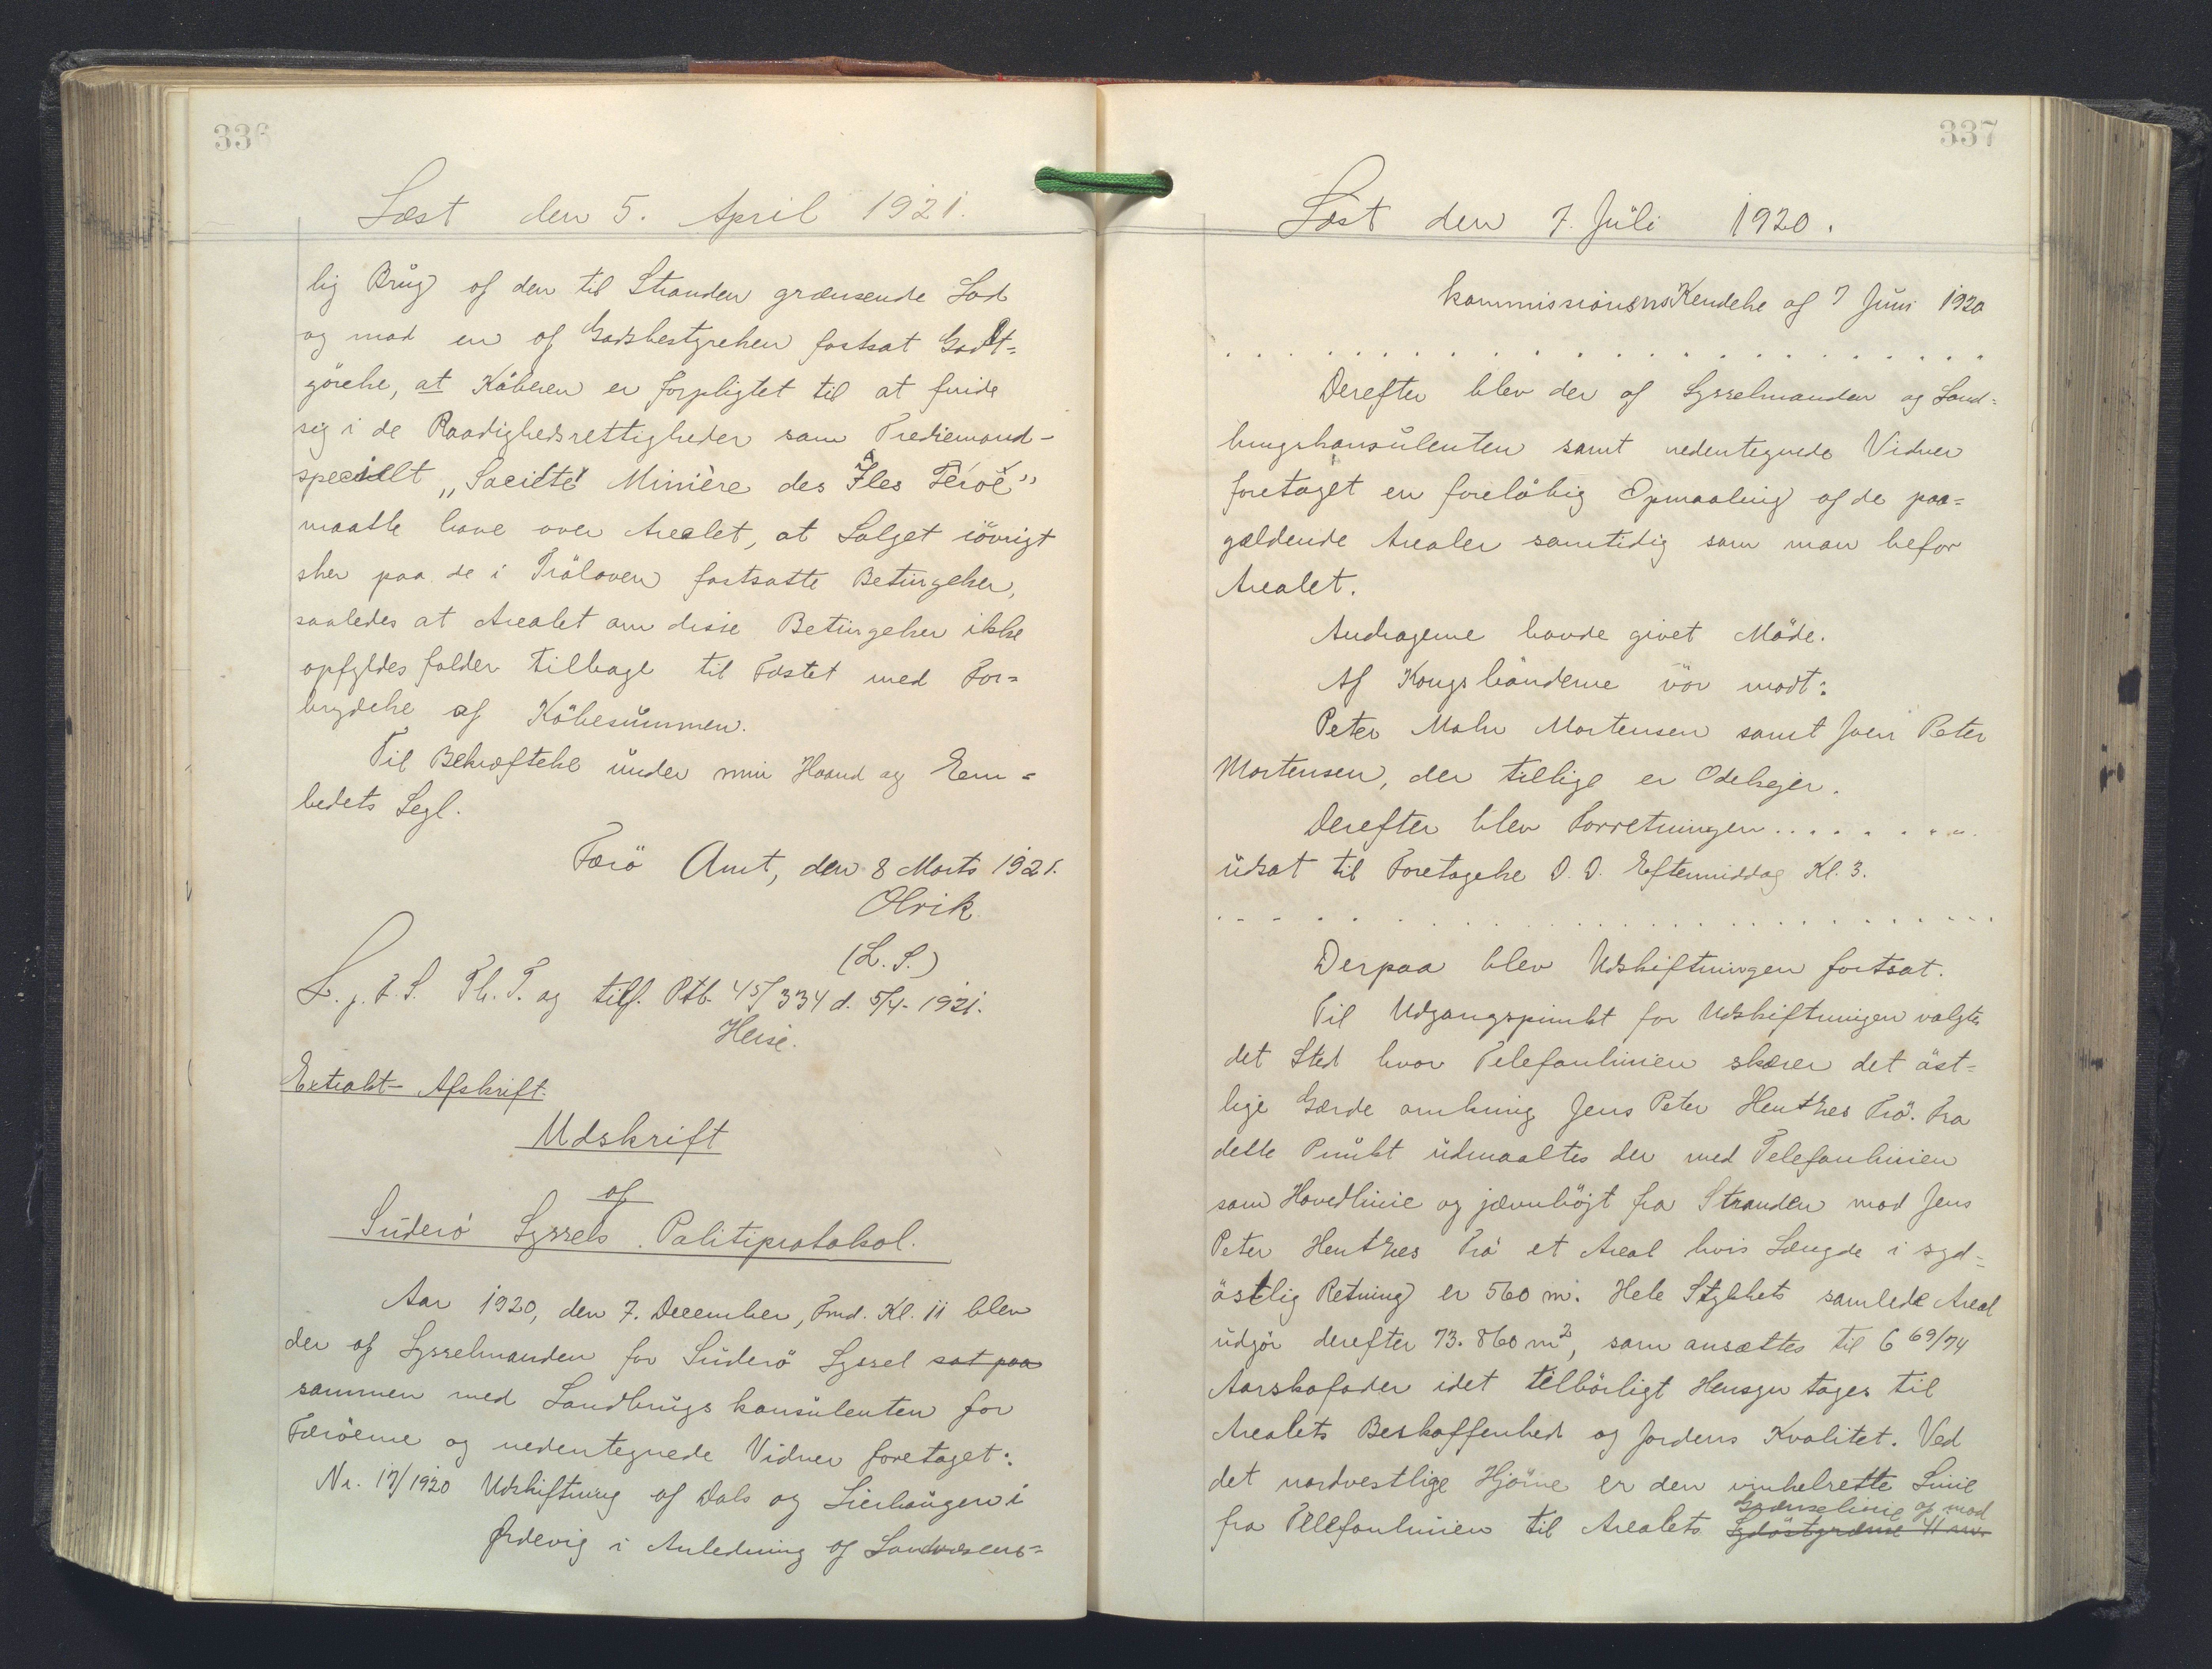 336
Læst den 5. April 1921.
lig Brug af den til Stranden grænsende Lod
og mod en af Godsbestyrelsen fastsat Godt=
görelse, at Köberen er forpligtet til at finde
sig i de Raadighedsrettigheder som Trediemand-
specielt „Société Minière des Îles Féroé"
maatte have over Arealet, at Salget iövrigt
sker paa de i Tröloven fastsatte Betingelser,
saaledes at Arealet om disse Betingelser ikke
opfyldes falder tilbage til Fæstet med For=
brydelse af Köbesummen.
Til Bekræftelse under min Haand og Em=
bedets Segl.
Færö Amt, den 8 Marts 1921.
Olrik.
(L. S.)
L. j. f. S. Th. T. og tilf. Ptb. 45/334 d. 5/4-1921.
Heise.
Extrakt-Afskrift.
Udskrift
af
Suderö Syssels Politiprotokol.
Aar 1920, den 7. December, Fmd. Kl. 11 blev
der af Sysselmanden for Suderö Syssel sat paa
sammen med Landbrugskonsulenten for
Færöerne og nedentegnede Vidner foretaget:
Nr. 17/1920 Udskiftning af Dals og Lierhaugen i
Ørdevig i Anledning af Landvæsens=
337
Læst den 7. Juli 1920.
kommissionens Kendelse af 7 Juni 1920
. . . . . . . . . . . . . . . . . . . .
Derefter blev der af Sysselmanden og Land=
brugskonsulenten samt nedentegnede Vidner
foretaget en foreløbig Opmaaling af de paa=
gældende Arealer samtidig som man befor
Arealet.
Andragerne havde givet Möde.
Af Kongsbönderne var mödt:
Peter Mohr Mortensen samt Joen Peter
Mortensen, der tillige er Odelsejer.
Derefter blev Forretningen . . . . . . . .
udsat til Foretagelse D. D. Eftermiddag Kl. 3.
. . . . . . . . . . . . . . . . . . . .
Derpaa blev Udskiftningen fortsat.
Til Udgangspunkt for Udskiftningen valgtes
det Sted hvor Telefonlinien skærer det öst=
lige Gærde omkring Jens Peter Hentzes Trö. Fra
dette Punkt udmaaltes der med Telefonlinien
som Hovedlinie og jævnhöjt fra Stranden mod Jens
Peter Hentzes Trö et Areal hvis Længde i syd=
östlig Retning er 560 m. Hele Stykkets samlede Areal
udgör derefter 73.860 m², som ansættes til 6 69/74
Aarskofoder idet tilbörligt Hensyn tages til
Arealets Beskaffenhed og Jordens Kvalitet. Ved
det nordvestlige Hjörne er den vinkelrette Linie
fra Telefonlinien til Arealets Sydöstgrænse Grænselinie op mod